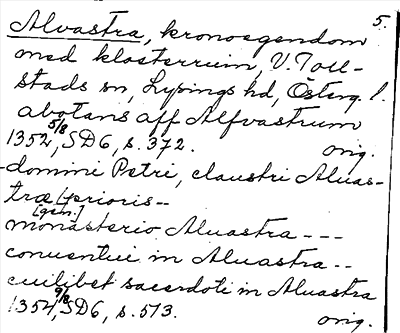 5.
Alvastra, kronoegendom
med klosterruin, V. Toll-
stads sn, Lysings hd, Österg. l.
abotans aff Alfvastrum
1352 5/8, SD6, s. 372. orig.
-domini Petri, claustri Aluas-
træ prioris--
[gen.]
monasterio Aluastra ---
conuentui in Aluastra --
cuilibet sacerdoti in Aluastra
1354 9/8, SD6, s. 513. orig.